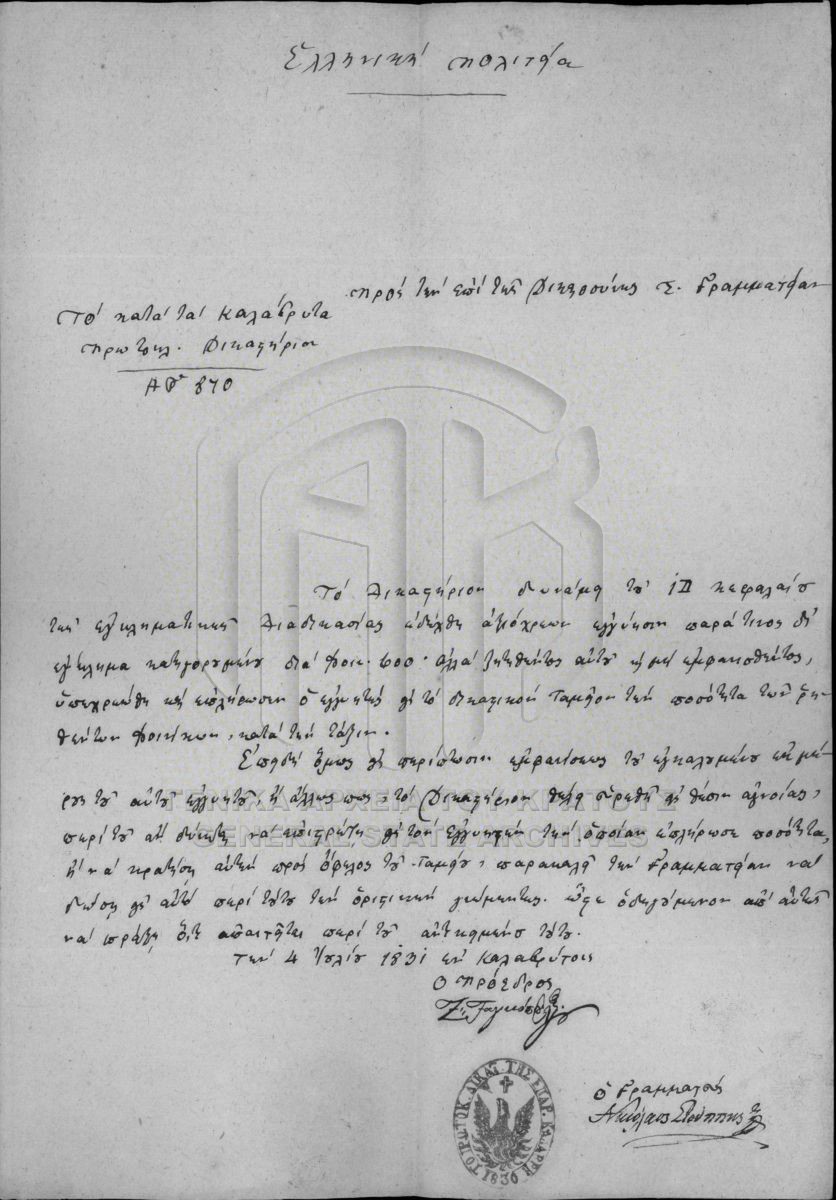 Ἑλληνικὴ Πολιτεία
Πρὸς τὴν ἐπὶ τῆς Δικαιοσύνης Σ. Γραμματείαν
Τὸ κατὰ τὰ Καλάβρυτα
Πρωτόκλ. Δικαστήριον
Ἀρ. 870
Τὸ Δικαστήριον δυνάμει τοῦ ΙΔ κεφαλαίου
τῆς ἐγκληματικῆς Διαδικασίας ἐδέχθη ἀξιόχρεων ἐγγύησιν παρά τινος δι'
ἔγκλημα κατηγορουμένου διὰ φοίν. 600. ἀλλὰ ζητηθέντος αὐτοῦ καὶ μὴ ἐμφανισθέντος,
ὑπεχρεώθη καὶ ἐπλήρωσεν ὁ ἐγγυητὴς εἰς τὸ δικαστικὸν Ταμεῖον τὴν ποσότητα τῶν ῥη-
θέντων φοινίκων, κατὰ τὴν τάξιν.
Ἐπειδὴ ὅμως εἰς περίστωσιν ἐμφανίσεως τοῦ ἐγκαλουμένου ἐκ μέ-
ρους τοῦ αὐτοῦ ἐγγυητοῦ, ἢ ἄλλως πως, τὸ Δικαστήριον θέλει εὑρεθῆ εἰς θέσιν ἀγνοίας,
περὶ τοῦ ἂν δύναται νὰ ἐπιστρέψῃ εἰς τὸν ἐγγυητὴν τὴν ὁποίαν ἐπλήρωσε ποσότητα,
ἢ νὰ κρατήσῃ αὐτὴν πρὸς ὄφελος τοῦ Ταμείου, παρακαλεῖ τὴν Γραμματείαν νὰ
δώσῃ εἰς αὐτὸ περὶ τούτου τὴν ὁριστικὴν γνώμην της. ὥστε ὁδηγούμενον ἀπ' αὐτῆς
νὰ πράξῃ ὅ,τι ἀπαιτεῖται περὶ τοῦ ἀντικειμένου τούτου.
Τὴν 4 Ἰουλίου 1831 ἐν Καλαβρύτοις
Ὁ Πρόεδρος
Ὁ Γραμματεὺς
Νικόλαος
ΤΟ ΠΡΩΤΟΚ. ΔΙΚΑΣ. ΤΗΣ ΕΠΑΡ.
1830
ΓΕΝΙΚΑ ΑΡΧΕΙΑ ΤΟΥ ΚΡΑΤΟΥΣ
GENERAL STATE ARCHIVES
ΓΑΚ